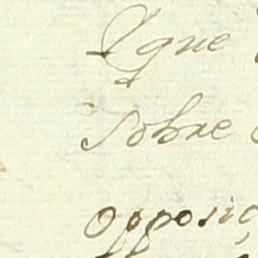 Que
Sobre
opposiç